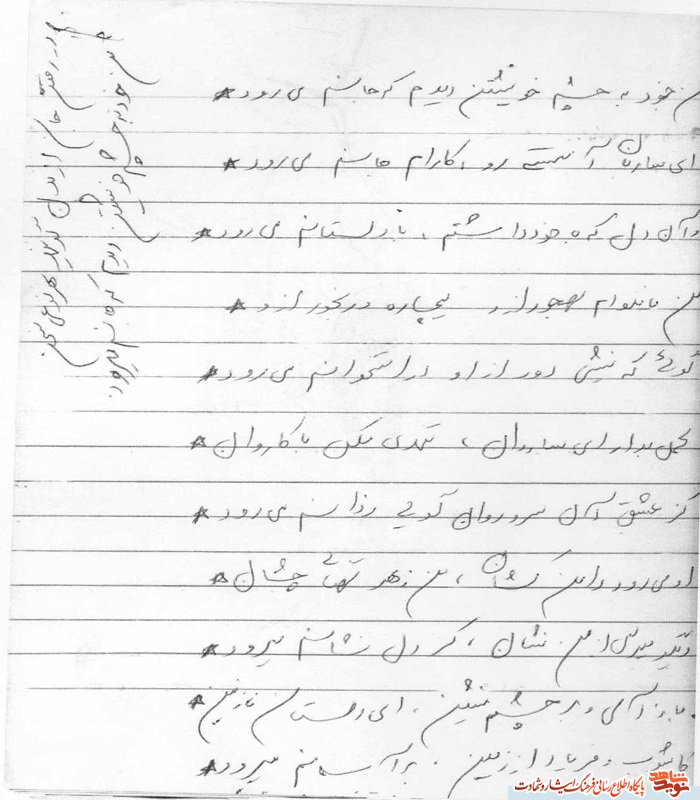 من خود به چشم خویشتن دیدم که جانم می رود
ای ساربان آهسته رو، کارام جانم می رود
وآن دل که با خود داشتم، با دلستانم می رود
من مانده‌ام مهجور از او بیچاره و رنجور از او
گوئی که نیشی دور از او در استخوانم می رود
محمل بدار ای ساروان، تندی مکن با کاروان
کز عشق آن سرو روان گویی روانم می رود
او می رود دامن کشان، من زهر تنهائی چشان
دیگر مپرس از من نشان، کز دل نشانم میرود
باز آی و بر چشمم نشین، ای دلستان نازنین
کاشوب و فریاد از زمین، بر آسمانم میرود
در رفتن جان از بدن گویند هر نوعی سخن
من خود به چشم خویشتن دیدم که جانم میرود
شاهد
نوید
پایگاه اطلاع رسانی فرهنگ ایثار و شهادت